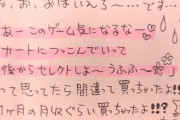 お、おはいえろ〜…です…
あーこのゲーム気になるなー
カートにつっこんでいって
後からセレクトしよ〜うふふ〜
って思ってたら間違って買っちゃたよ
1ヶ月の月収ぐらい買っちゃたよ!!?